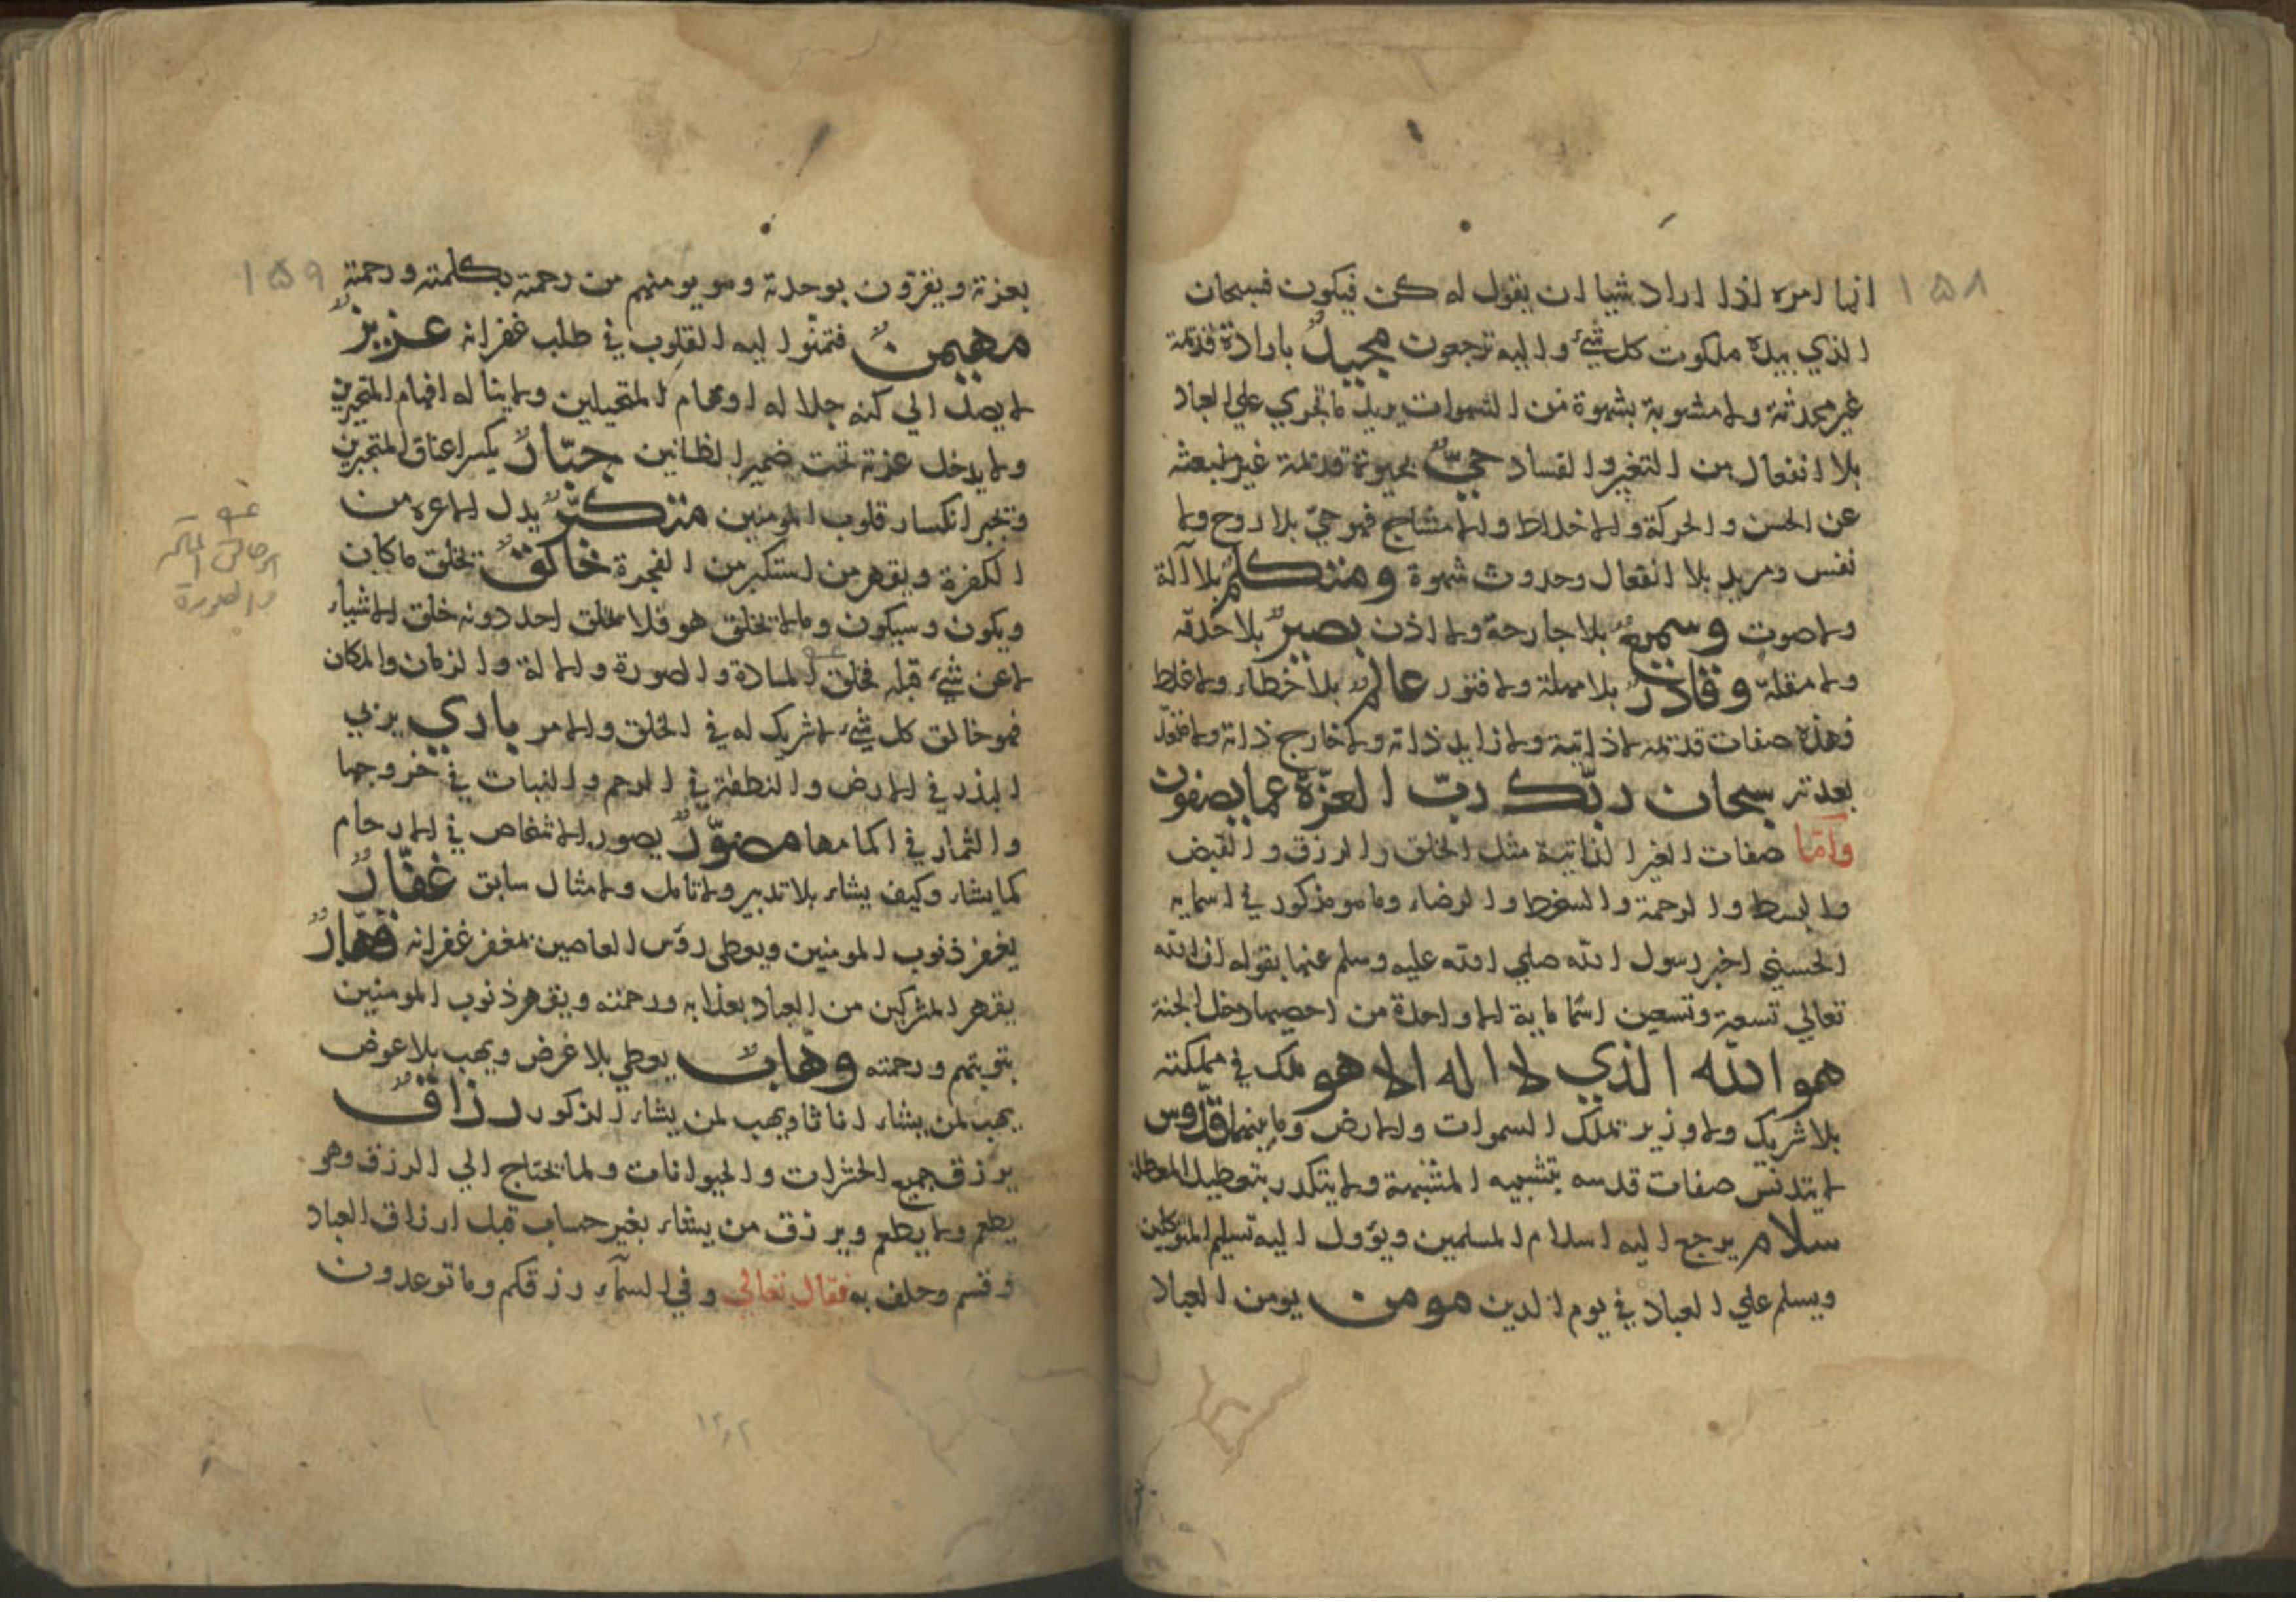 ١٥٨
انما امره اذا اراد شيا ان يقول له كن فيكون فسبحان
الذي بيده ملكوت كل شيء واليه ترجعون مجيد بارادة قديمة
غير محدثة ولا مشوبة بشهوة من الشهوات يريد ما تجري علي العباد
بلا انفعال من التغير والفساد حيّ بحيوة قديمة غير منبعثه
عن الحس والحركة ولا اخلاط ولا امشاج فهو حيّ بلا روح ولا
نفس ومريد بلا انفعال وحدوث شهوة ومتكلم بلا آلة
ولا صوت وسميع بلا جارحة ولا اذن بصير بلا حدقه
ولا مقلة وقادر بلا مهلة ولا فتور عالم بلا خطاء ولا غلط
فهذه صفات قديمه لا ذاتية ولا زايد ذاته ولا خارج ذاته
سبحان ربّك ربّ العزّة عما يصفون
وامّا صفات الغير الذاتية مثل الخلق والرزق والقبض
والبسط والرحمة والسخط والرضاء وما هو مذكور في اسمايه
الحسني اخبر رسول الله صلي الله عليه وسلم عنها بقوله ان الله
تعالي تسعة وتسعين اسما ماية الا واحدة من احصيها دخل الجنة
هو الله الذي لا اله الا هو ملك في مملكته
بلا شريك ولا وزير تملك السموات والارض وما بينهما قدّوس
لا يتدنّس صفات قدسه بتشبيه المشبهة ولا يتكدر بتعطيل المعطلة
سلام يرجع اليه اسلام المسلمين ويؤول اليه تسليم المتوكلين
ويسلم علي العباد في يوم الدين مومن يومن العباد
١٥٩
بعزته ويغرقون بوحدته وهو يومنهم من رحمته بكلمته ورحمته
مهيمن فتمنوا اليه القلوب في طلب غفرانه عزيز
لا يصل الي كنه جلاله اوهام المتخيلين ولا يناله افهام المتحيرين
ولا يدخل عزته تحت ضمير الظانين جبّار يكسر اعناق المتجبرين
وتجبر انكسار قلوب المومنين متكبّر يذل الاعزه من
الكفرة ويقهر من استكبر من الفجرة خالق يخلق ما كان
ويكون وسيكون وما لا يخلق هو فلا يخلق احد دونه خلق الاشياء
لا عن شيء قبله فخلق المادة والصورة والالة والزمان والمكان
فهو خالق كل شيء لا شريك له في الخلق والامر باري يربي
البذر في الارض والنطفة في الرحم والنبات في خروجها
والثمار في اكمامها مصوّر يصور الاشخاص في الارحام
كما يشاء وكيف يشاء بلا تدبير ولا تامل ولا مثال سابق غفّار
يغفر ذنوب المومنين ويغطي رؤس العاصين بمغفر غفرانه قهّار
يقهر المشركين من العباد بعذابه ورحمته ويقهر ذنوب المومنين
بتوبتهم ورحمته وهّاب يعطي بلا غرض ويهب بلا عوض
يهب لمن يشاء اناثا ويهب لمن يشاء الذكور رزاق
يرزق جميع الحشرات والحيوانات ولما يحتاج الي الرزق وهو
يطعم ولا يطعم ويرزق من يشاء بغير حساب قبل ارزاق العباد
وقسم وحلف به فقال تعالي وفي السمآء رزقكم وما توعدون
والصورة